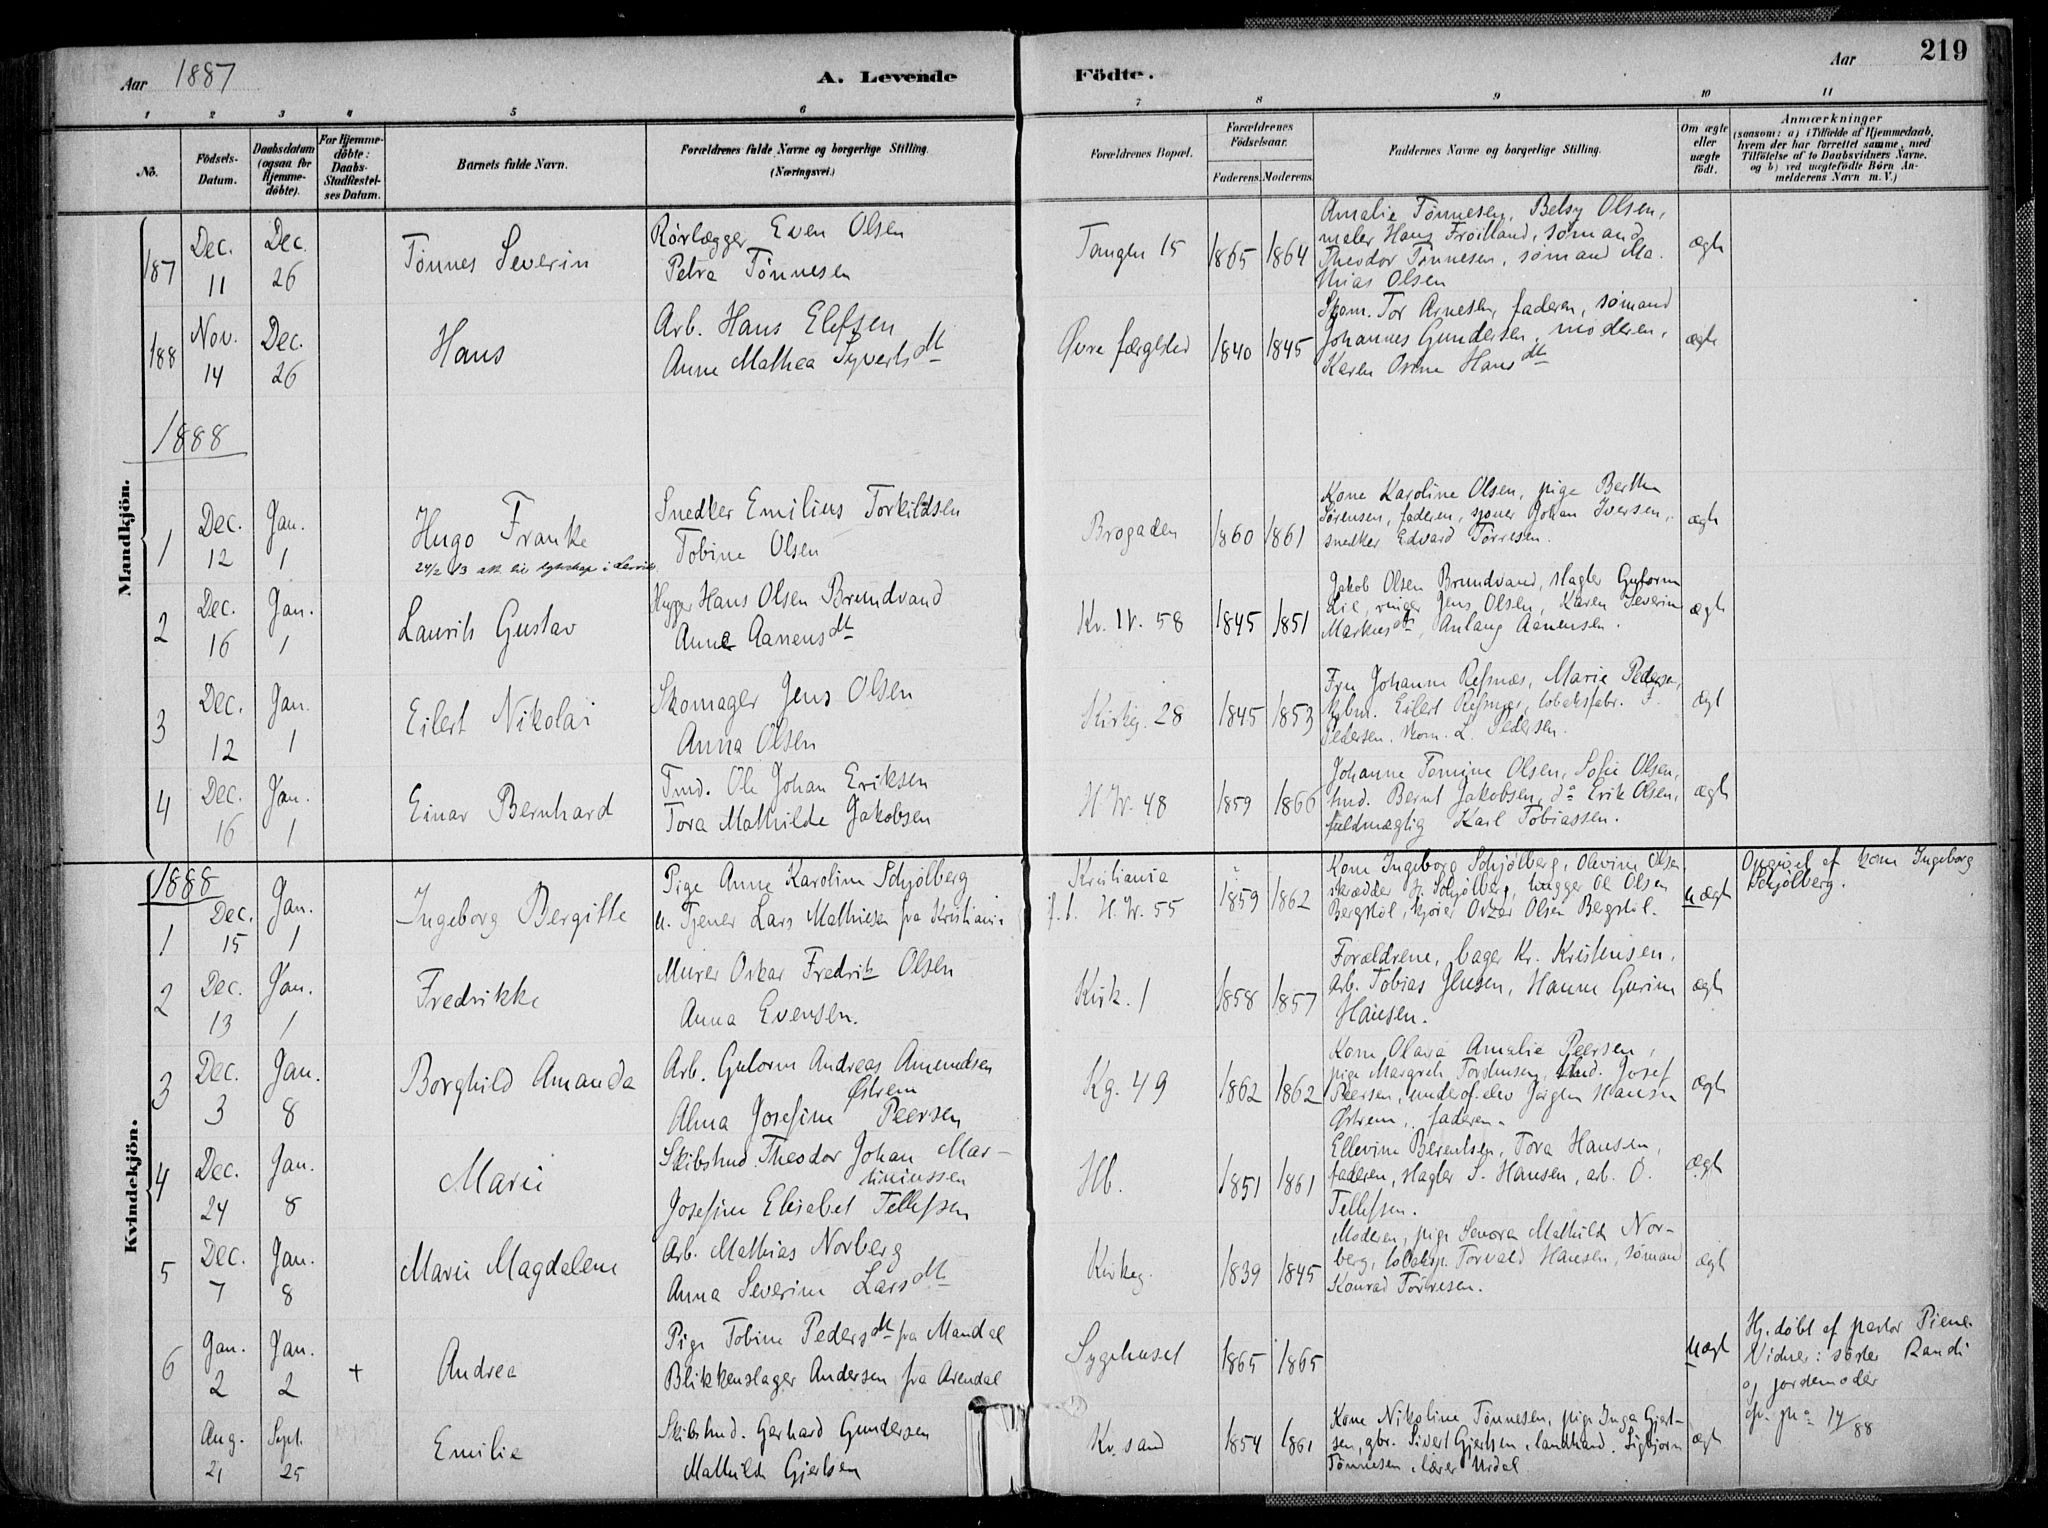 Aar 1887 A. Levende Födte. Aar 219
1 2 3 4 5 6 7 8 9 10 11
No.
Födsels-Datum.
Daabsdatum (ogsaa for Hjemme-döbte).
For Hjemme-döbte: Daabs-Stadfæstel-ses Datum.
Barnets fulde Navn.
Forældrenes fulde Navne og borgerlige Stilling.
(Næringsvei.)
Forældrenes Bopæl.
Forældrenes Födselsaar.
Faderens. Moderens.
Faddernes Navne og borgerlige Stilling.
Om ægte eller uægte födt.
Anmærkninger
(saasom: a) i Tilfælde af Hjemmedaab,
hvem der har forrettet samme, med
Tilföielse af to Daabsvidners Navne.
og b) ved uægtefödte Börn An-
melderens Navn m. V.)
Mandkjön.
187 Dec. 11 Dec. 26 Tönnes Severin
Rörlægger Even Olsen
Petra Tönnesen
Tangen 15 1865 1864
Amalie Tönnesen, Betsy Olsen,
maler Hans Fröitland, sömand
Theodor Tönnesen, sömand Ma-
thias Olsen
ægte
188 Nov. 14 Dec. 26 Hans
Arb. Hans Elefsen
Anne Mathea Syvertsdtr
Øvre færgested 1840 1845
Skom. Tor Arnesen, faderen, sömand
Johannes Gundersen, moderen,
Karen Hansdtr
ægte
1888
1 Dec. 12 Jan. 1 Hugo Franke
24/2 43 att. til
Snedker Emilius Torkildsen
Tobine Olsen
Brogaden 1860 1861
Kone Karoline Olsen, pige Berthe
Sörensen, faderen, Johan Iversen,
snedker Edvard Törresen.
ægte
2 Dec. 16 Jan. 1 Laurits Gustav
Hans Olsen Brundvand
Anne Aanensdtr
Kr. IV. 58 1845 1851
Jakob Olsen Brundvand, slagter Gutorm
Lie, ringer Jens Olsen, Karen Severine
Markusdtr, Anlaug Aanensen.
ægte
3 Dec. 12 Jan. 1 Eilert Nikolai
Skomager Jens Olsen
Anna Olsen
Kirkeg. 28 1845 1853
Fru Johanne Refsnæs, Marie Pedersen,
kjbm. Eilert Refsnæs, tobaksfabr. P.
Pedersen, skom. L. Pedersen.
ægte
4 Dec. 16 Jan. 1 Einar Bernhard
Tmd. Ole Johan Eriksen
Tora Mathilde Jakobsen
H.W. 48 1859 1866
Johanne Tomine Olsen, Sofie Olsen,
tmd. Bernt Jakobsen, do Erik Olsen,
fuldmægtig Karl Tobiassen.
ægte
Kvindekjön.
1888
1 Dec. 15 Jan. 1 Ingeborg Bergitte
Pige Anne Karoline Schjölberg
u. Tjener Lars Mathiesen fra Kristiania
Kristiania
f. t. H.W. 55 1859 1862
Kone Ingeborg Schjölberg, Olevine Olsen
skrædder Schjölberg, hugger Ol Olsen
Bergstöl, Olsen Bergstöl.
uægte
Opgivet af kone Ingeborg
Schjölberg.
2 Dec. 13 Jan. 1 Fredrikke
Murer Oskar Fredrik Olsen
Anna Evensen.
Kirk. 1 1858 1857
Forældrene, bager Kr. Kristensen,
arb. Tobias Jensen, Hanne Gurine
Hansen.
ægte
3 Dec. 3 Jan. 8 Borghild Amanda
Arb. Gutorm Andreas Amundsen
Østrem
Alma Josefine Peersen
Kg. 49 1862 1862
Kone Olava Amalie Peersen,
pige Margrete Torstensen, tmd. Josef
Peersen, underof. elev Jörgen Hansen
Østrem, faderen.
ægte
4 Dec. 24 Jan. 8 Marie
Skibstmd. Theodor Johan Mar-
tiniussen
Josefine Elisabet Tellefsen
Hb. 1851 1861
Ellevine Berentsen, Tora Hansen,
faderen, slagter S. Hansen, arb. O.
Tellefsen.
ægte
5 Dec. 7 Jan. 8 Marie Magdalene
Arb. Mathias Norberg
Anna Severine Larsdtr
Kirkeg. 1839 1845
Moderen, pige Senora Mathilde Nor-
berg, tobaksp. Torvald Hansen, sömand
Konrad Törresen.
ægte
6 Jan. 2 Jan. 2 + Andrea
Pige Tobine Pedersdtr fra Mandal
Blikkenslager Andersen fra Arendal
Sygehuset 1865 1865
uægte
Hj. döbt af pastor Piene
Vidner: söster Randi
og jordemoder
Aug. 21 Sept. 25 Emilie
Skibstmd. Gerhard Gundersen
Mathilde Gjertsen
Kr.sand 1854 1861
Kone Nikoline Tönnesen, pige Inga Gjert-
sen, gbr. Sivert Gjertsen, landhand. Sigbjörn
Tönnesen, lærer Urdal
ægte